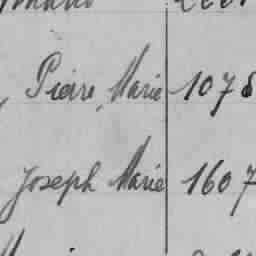 Pierre Marie 1078
Joseph Marie 1607